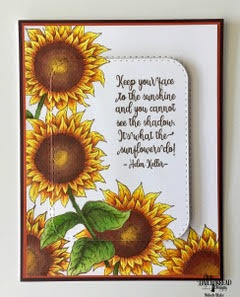 Keep your face
to the sunshine
and you cannot
see the shadow.
It's what the
sunflowers do!
- Helen Keller -